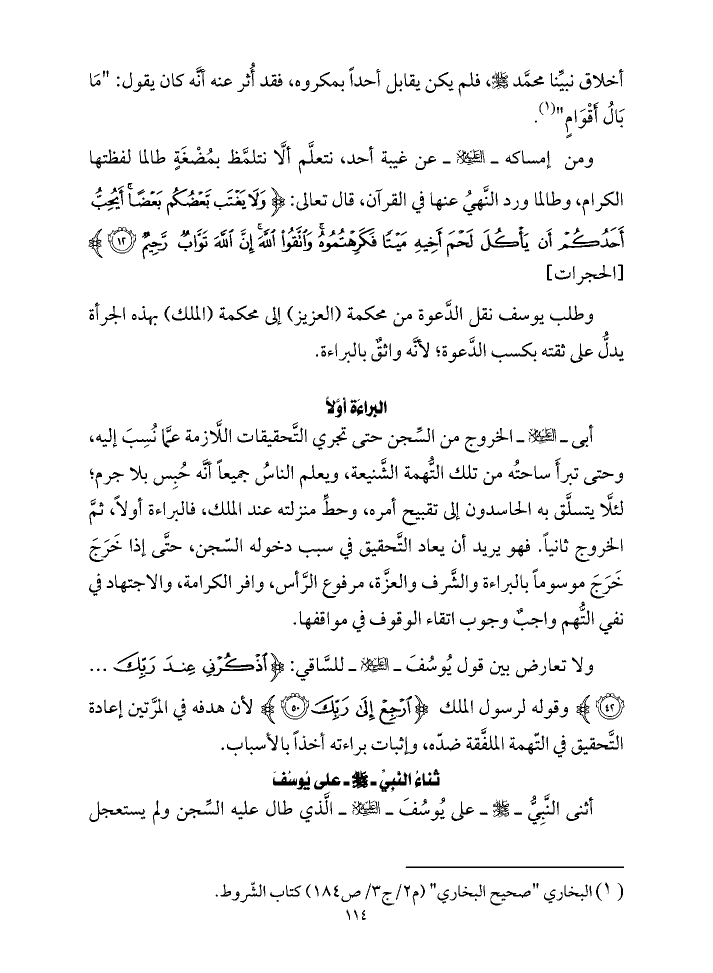 أخلاق نبيِّنا محمَّد ﷺ، فلم يكن يقابل أحداً بمكروه، فقد أُثر عنه أنَّه كان يقول: "مَا
بَالُ أَقْوَامٍ"(١).
ومن إمساكه ـ العليه السلام ـ عن غيبة أحد، نتعلَّم ألَّا نتلمَّظ بمُضْغَةٍ طالما لفظتها
الكرام، وطالما ورد النَّهيُ عنها في القرآن، قال تعالى: ﴿ وَلَا يَغْتَب بَّعْضُكُم بَعْضًا ۚ أَيُحِبُّ
أَحَدُكُمْ أَن يَأْكُلَ لَحْمَ أَخِيهِ مَيْتًا فَكَرِهْتُمُوهُ ۚ وَاتَّقُوا اللَّهَ ۚ إِنَّ اللَّهَ تَوَّابٌ رَّحِيمٌ ۝١٢ ﴾
[الحجرات]
وطلب يوسف نقل الدَّعوة من محكمة (العزيز) إلى محكمة (الملك) بهذه الجرأة
يدلُّ على ثقته بكسب الدَّعوة؛ لأنَّه واثقٌ بالبراءة.
البراءة أوَّلاً
أبى ـ العليه السلام ـ الخروج من السِّجن حتى تجري التَّحقيقات اللَّازمة عمَّا نُسِبَ إليه،
وحتى تبرأَ ساحتُه من تلك التُّهمة الشَّنيعة، ويعلم الناسُ جميعاً أنَّه حُبِس بلا جرم؛
لئلَّا يتسلَّق به الحاسدون إلى تقبيح أمره، وحطِّ منزلته عند الملك، فالبراءة أولاً، ثمَّ
الخروج ثانياً. فهو يريد أن يعاد التَّحقيق في سبب دخوله السّجن، حتَّى إذا خَرَجَ
خَرَجَ موسوماً بالبراءة والشَّرف والعزَّة، مرفوع الرَّأس، وافر الكرامة، والاجتهاد في
نفي التُّهم واجبٌ وجوب اتقاء الوقوف في مواقفها.
ولا تعارض بين قول يُوسُفَ ـ العليه السلام ـ للسَّاقي: ﴿ اذْكُرْنِي عِندَ رَبِّكَ ...
۝٤٢ ﴾ وقوله لرسول الملك ﴿ ارْجِعْ إِلَىٰ رَبِّكَ ۝٥٠ ﴾ لأن هدفه في المرَّتين إعادة
التَّحقيق في التّهمة الملفَّقة ضدّه، وإثبات براءته أخذاً بالأسباب.
ثناءُ النَّبيِّ ـ ﷺ ـ على يُوسُفَ
أثنى النَّبِيُّ ـ ﷺ ـ على يُوسُفَ ـ العليه السلام ـ الَّذي طال عليه السِّجن ولم يستعجل
(١) البخاري "صحيح البخاري" (م٢/ ج٣/ ص١٨٤) كتاب الشّروط.
١١٤